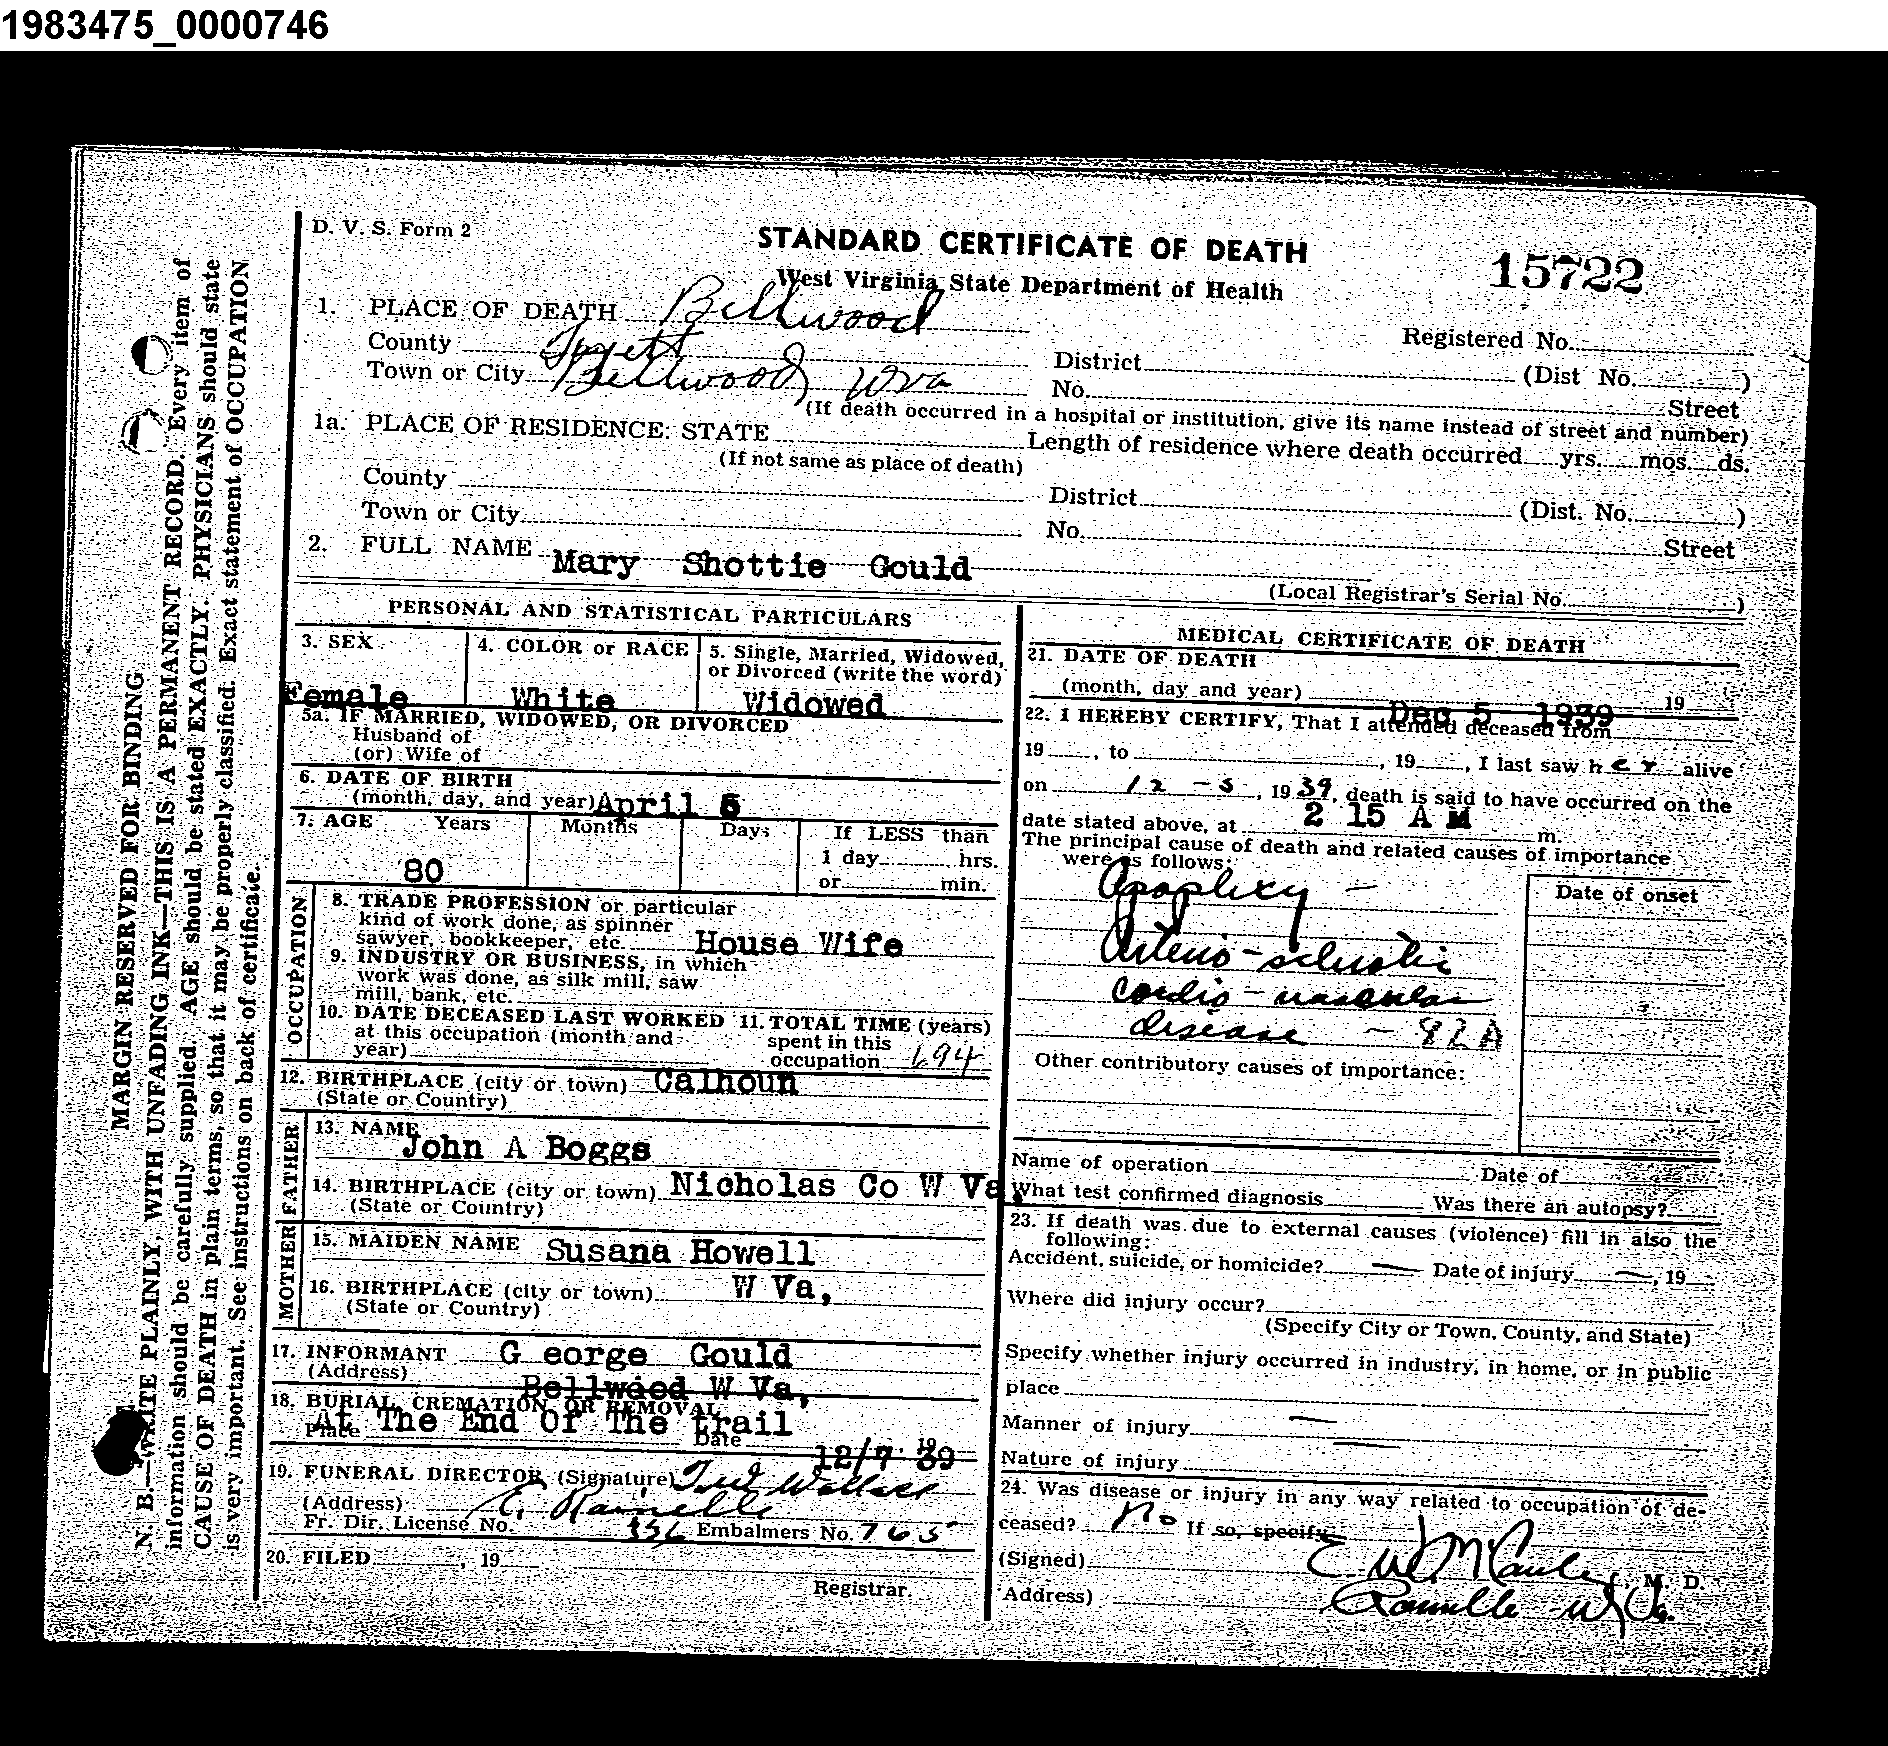 1983475_0000746
D. V. S. Form 2
STANDARD CERTIFICATE OF DEATH
West Virginia State Department of Health
15722
1. PLACE OF DEATH Bellwood
Registered No.
County Fayett
District (Dist No. )
Town or City Bellwood Wva
No. Street
(If death occurred in a hospital or institution, give its name instead of street and number)
1a. PLACE OF RESIDENCE: STATE Length of residence where death occurred yrs. mos. ds.
(If not same as place of death)
County District (Dist. No. )
Town or City No. Street
2. FULL NAME Mary Shottie Gould
(Local Registrar's Serial No. )
PERSONAL AND STATISTICAL PARTICULARS
3. SEX Female
4. COLOR or RACE White
5. Single, Married, Widowed, or Divorced (write the word) Widowed
5a. IF MARRIED, WIDOWED, OR DIVORCED
Husband of
(or) Wife of
6. DATE OF BIRTH
(month, day, and year) April 5
7. AGE Years Months Days If LESS than
1 day hrs.
80 or min.
OCCUPATION
8. TRADE PROFESSION or particular
kind of work done, as spinner
sawyer, bookkeeper, etc. House Wife
9. INDUSTRY OR BUSINESS, in which
work was done, as silk mill, saw
mill, bank, etc.
10. DATE DECEASED LAST WORKED
at this occupation (month and
year)
11. TOTAL TIME (years)
spent in this
occupation 694
12. BIRTHPLACE (city or town) Calhoun
(State or Country)
FATHER
13. NAME John A Boggs
14. BIRTHPLACE (city or town) Nicholas Co W Va,
(State or Country)
MOTHER
15. MAIDEN NAME Susana Howell
16. BIRTHPLACE (city or town) W Va,
(State or Country)
17. INFORMANT G eorge Gould
(Address) Bellwood W Va,
18. BURIAL, CREMATION, OR REMOVAL
Place At The End Of The trail
Date 12/7 19 39
19. FUNERAL DIRECTOR (Signature) Wallace
(Address) E. Rainelle
Fr. Dir. License No. 456 Embalmers No. 765
20. FILED , 19
Registrar.
MEDICAL CERTIFICATE OF DEATH
21. DATE OF DEATH
(month, day and year) Dec 5 1939 19
22. I HEREBY CERTIFY, That I attended deceased from
19 , to , 19 , I last saw her alive
on 12 - 5 , 19 39, death is said to have occurred on the
date stated above, at 2 15 A M m.
The principal cause of death and related causes of importance
were as follows:
Date of onset
Apoplexy -
Arterio-sclerotic
Cardio-vascular
disease - 82A
Other contributory causes of importance:
Name of operation Date of
What test confirmed diagnosis Was there an autopsy?
23. If death was due to external causes (violence) fill in also the
following:
Accident, suicide, or homicide? — Date of injury — , 19
Where did injury occur?
(Specify City or Town, County, and State)
Specify whether injury occurred in industry, in home, or in public
place
Manner of injury —
Nature of injury —
24. Was disease or injury in any way related to occupation of de-
ceased? No If so, specify
(Signed) E W McCauley, M. D.
Address) Rainelle W Va.
MARGIN RESERVED FOR BINDING
N. B.—WRITE PLAINLY, WITH UNFADING INK—THIS IS A PERMANENT RECORD. Every item of
information should be carefully supplied. AGE should be stated EXACTLY. PHYSICIANS should state
CAUSE OF DEATH in plain terms, so that it may be properly classified. Exact statement of OCCUPATION
is very important. See instructions on back of certificate.